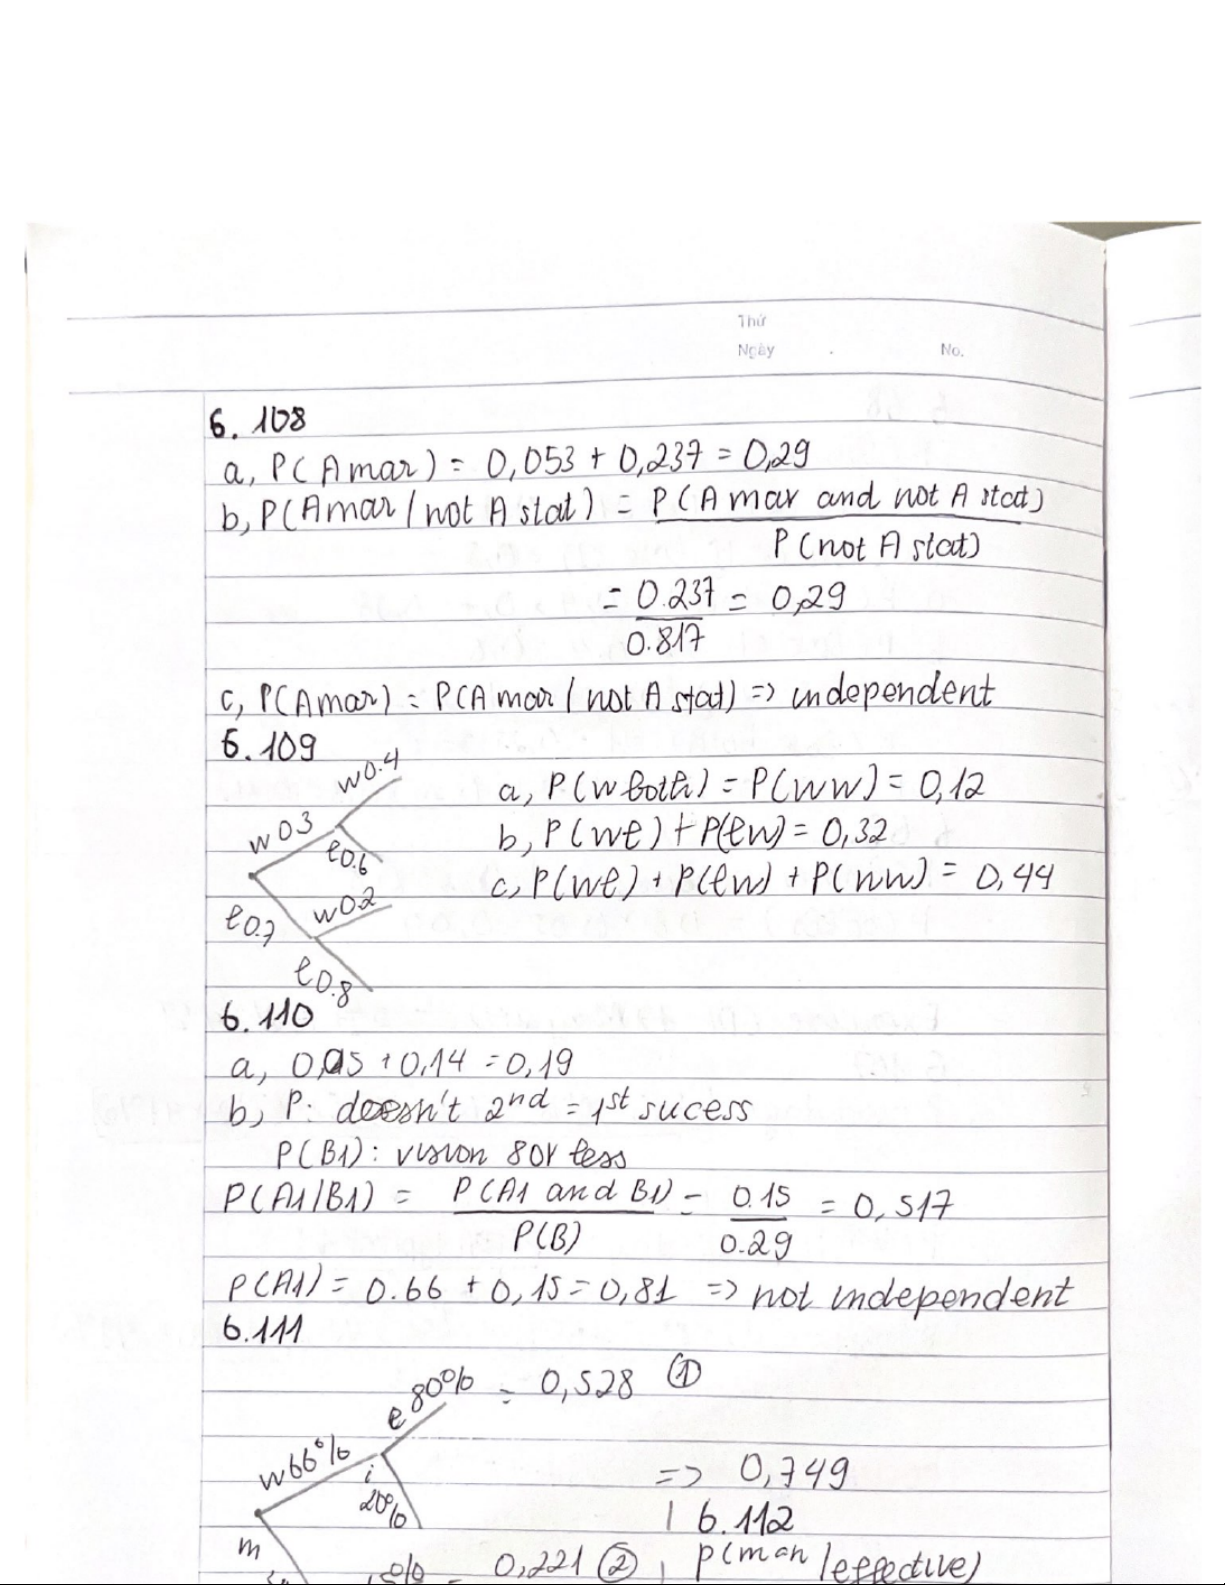 Thứ
Ngày No.
6. 108
a, P(A mar) = 0,053 + 0,237 = 0,29
b, P(A mar / not A stat) = P(A mar and not A stat)
P(not A stat)
= 0.237 = 0,29
0.817
c, P(A mar) = P(A mar / not A stat) => independent
6.109
w 0.4
a, P(w both) = P(ww) = 0,12
w 0.3
b, P(wl) + P(lw) = 0,32
l 0.6
c, P(wl) + P(lw) + P(ww) = 0,44
w 0.2
l 0.7
l 0.8
6.110
a, 0,05 + 0,14 = 0,19
b, P: doesn't 2nd = 1st sucess
P(B1): vision 8 or less
P(A1/B1) = P(A1 and B1) = 0.15 = 0,517
P(B) 0.29
P(A1) = 0.66 + 0,15 = 0,81 => not independent
6.111
e 80% = 0,528 ①
w 66%
i 20%
=> 0,749
6.112
m
0,221 ② P(man / effective)